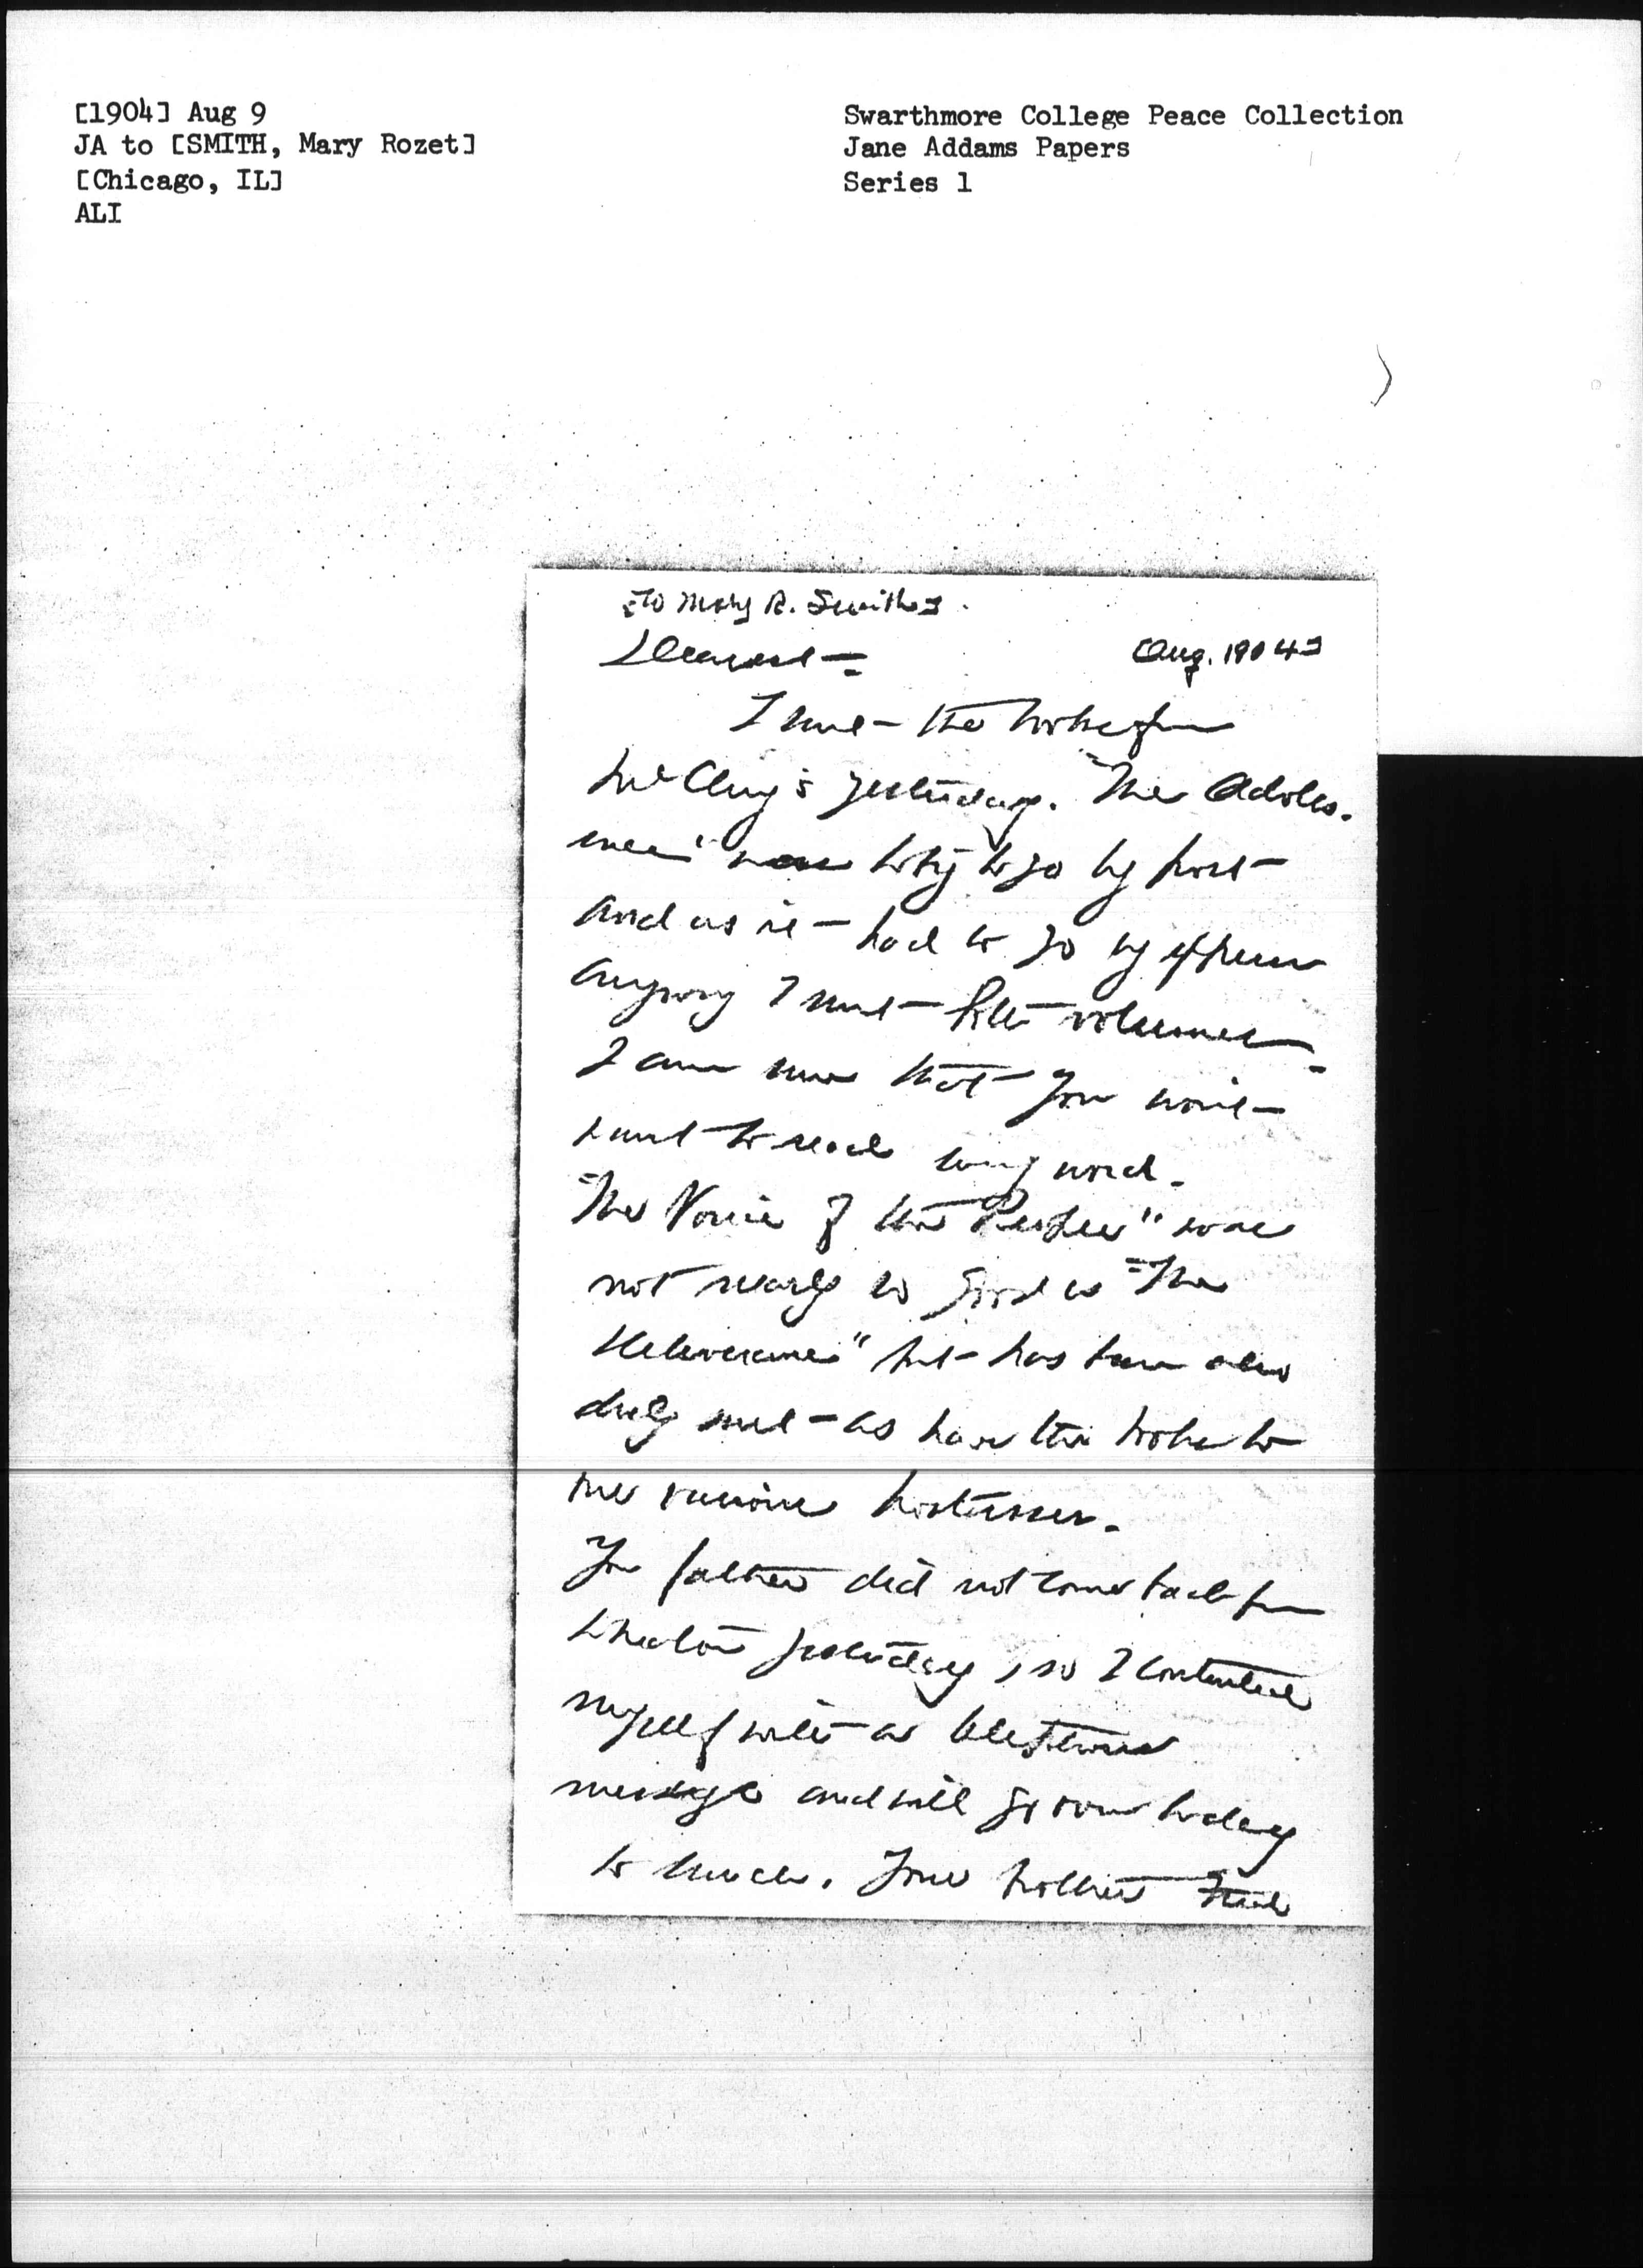 [1904] Aug 9
JA to [SMITH, Mary Rozet]
[Chicago, IL]
ALI
Swarthmore College Peace Collection
Jane Addams Papers
Series 1
[To Mary R. Smith]
Dearest — [Aug. 1904]
I sent the books from
McClurg's yesterday. "The Adoles-
cence" was to go by post
and as it had to go by express
anyway I sent both volumes —
I am sure that you won't
want to read every word.
"The Voice of the People" was
not nearly so good as "The
Deliverance" but has been also
duly sent as have the books to
the various hostesses.
Your father did not come back from
Wheaton yesterday, so I contented
myself with a telephone
message and will go over today
to lunch. Your brother